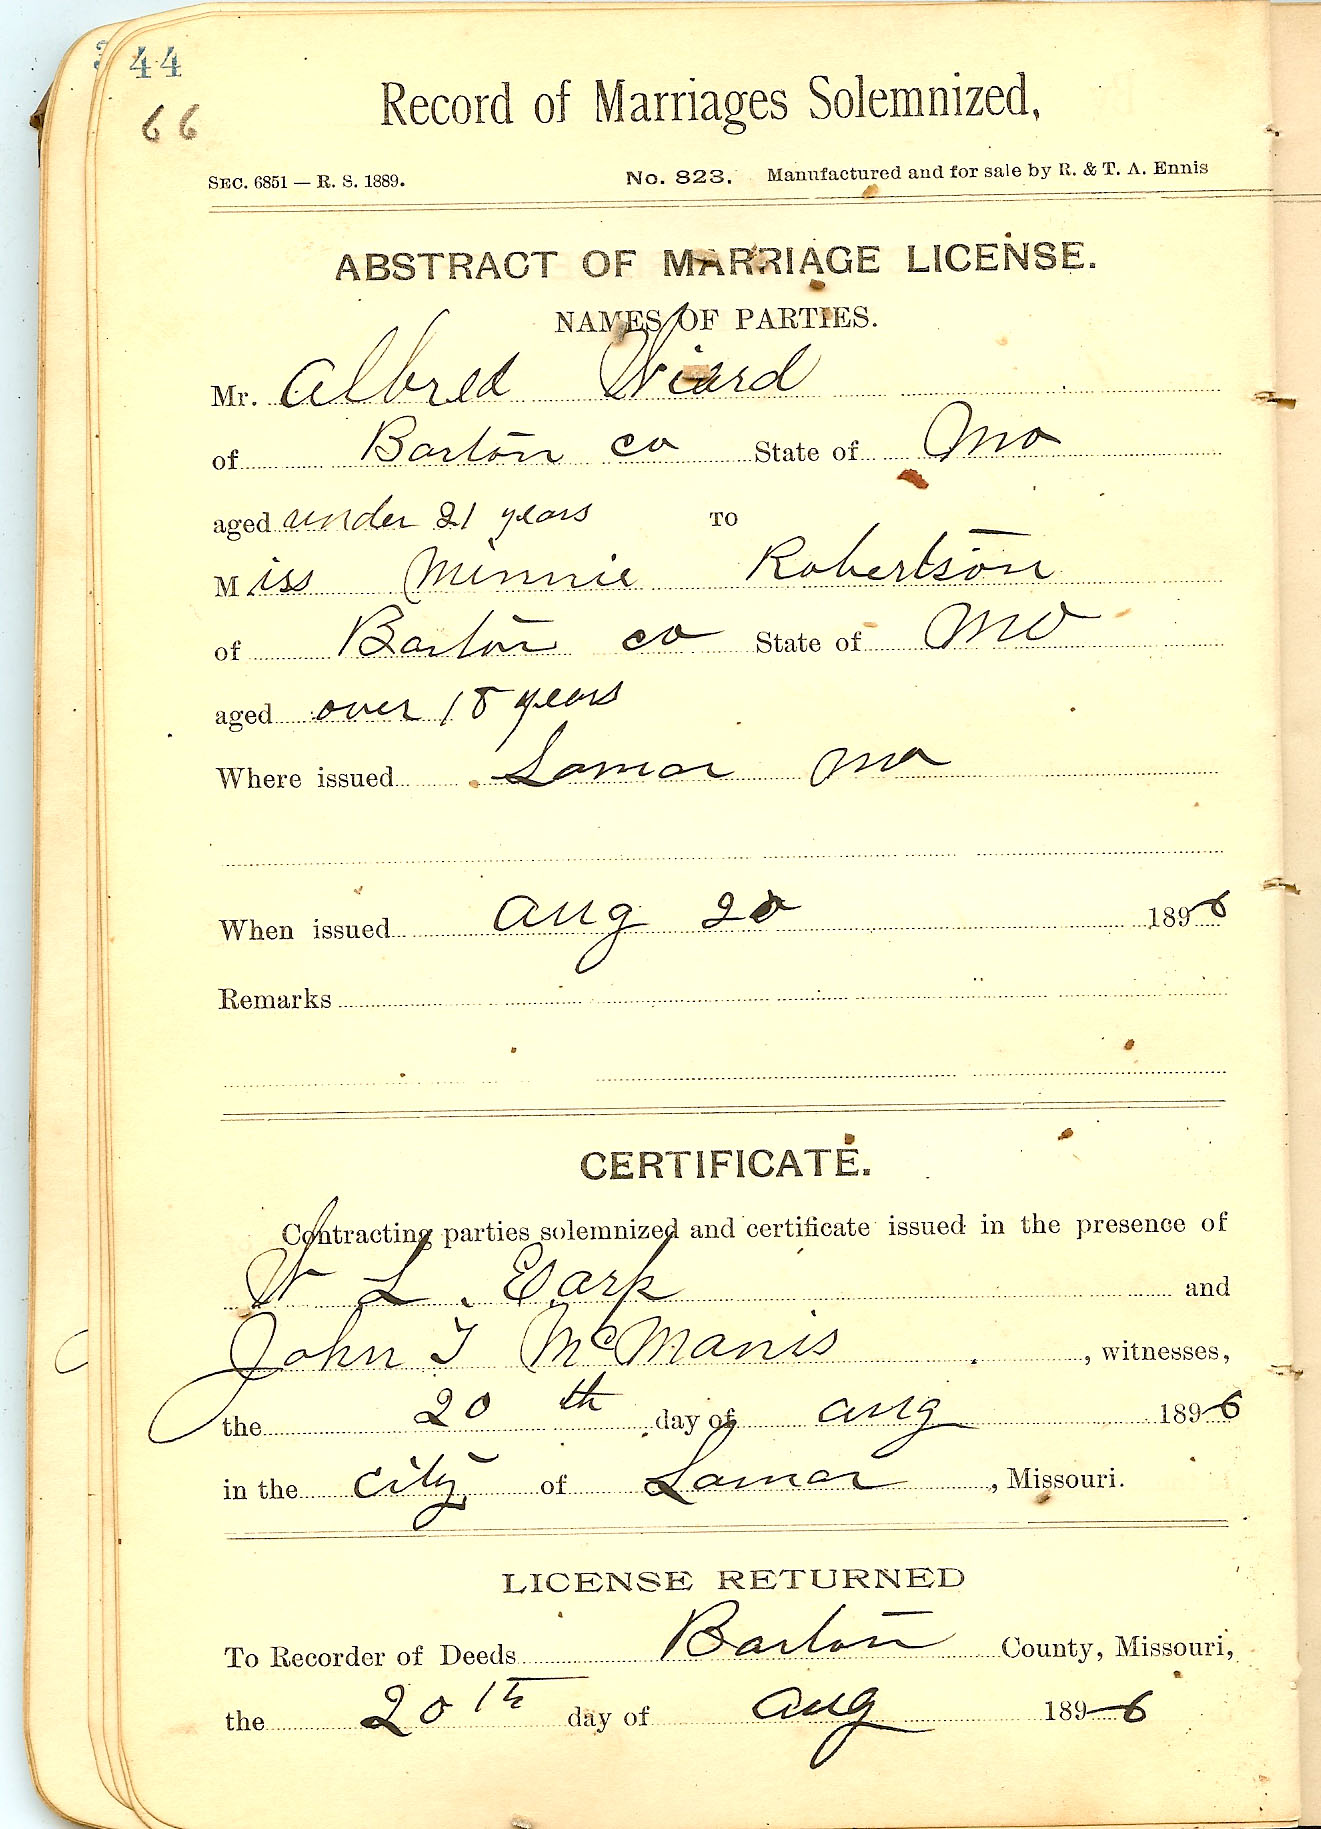 44
66
Record of Marriages Solemnized,
SEC. 6851 — R. S. 1889. No. 823. Manufactured and for sale by R. & T. A. Ennis
ABSTRACT OF MARRIAGE LICENSE.
NAMES OF PARTIES.
Mr. Albred Wiard
of Barton co State of Mo
aged under 21 years TO
Miss Minnie Robertson
of Barton co State of Mo
aged over 18 years
Where issued Lamar Mo
When issued Aug 20 1896
Remarks
CERTIFICATE.
Contracting parties solemnized and certificate issued in the presence of
W L. Earp and
John T McManis, witnesses,
the 20th day of Aug 1896
in the city of Lamar, Missouri.
LICENSE RETURNED
To Recorder of Deeds Barton County, Missouri,
the 20th day of Aug 1896